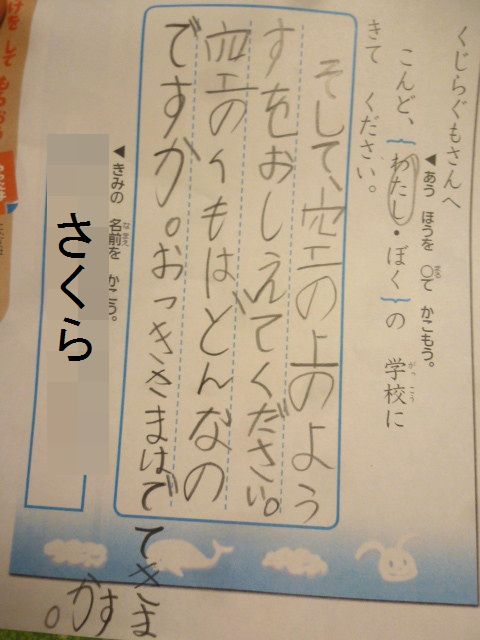 くじらぐもさんへ
◀あう ほうを ○で かこもう。
こんど、{わたし・ぼく}の 学校に
きて ください。
そして、空の上のよう
すをおしえてください。
空のくもはどんなの
ですか。おつきさまはでてきま
すか。
◀きみの 名前を かこう。
さくら
けを して もらおう